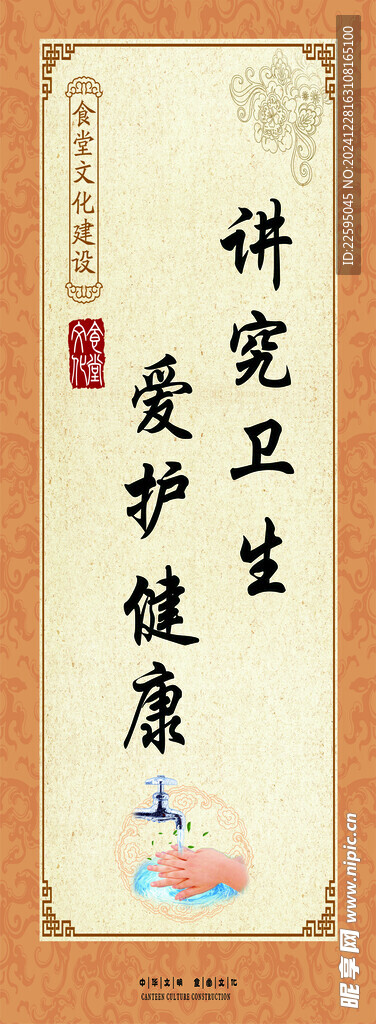 讲究卫生
爱护健康
食堂文化建设
食堂文化
中华文明 食堂文化
CANTEEN CULTURE CONSTRUCTION
ID:22595045 NO:20241228163108165100
昵享网 www.nipic.cn